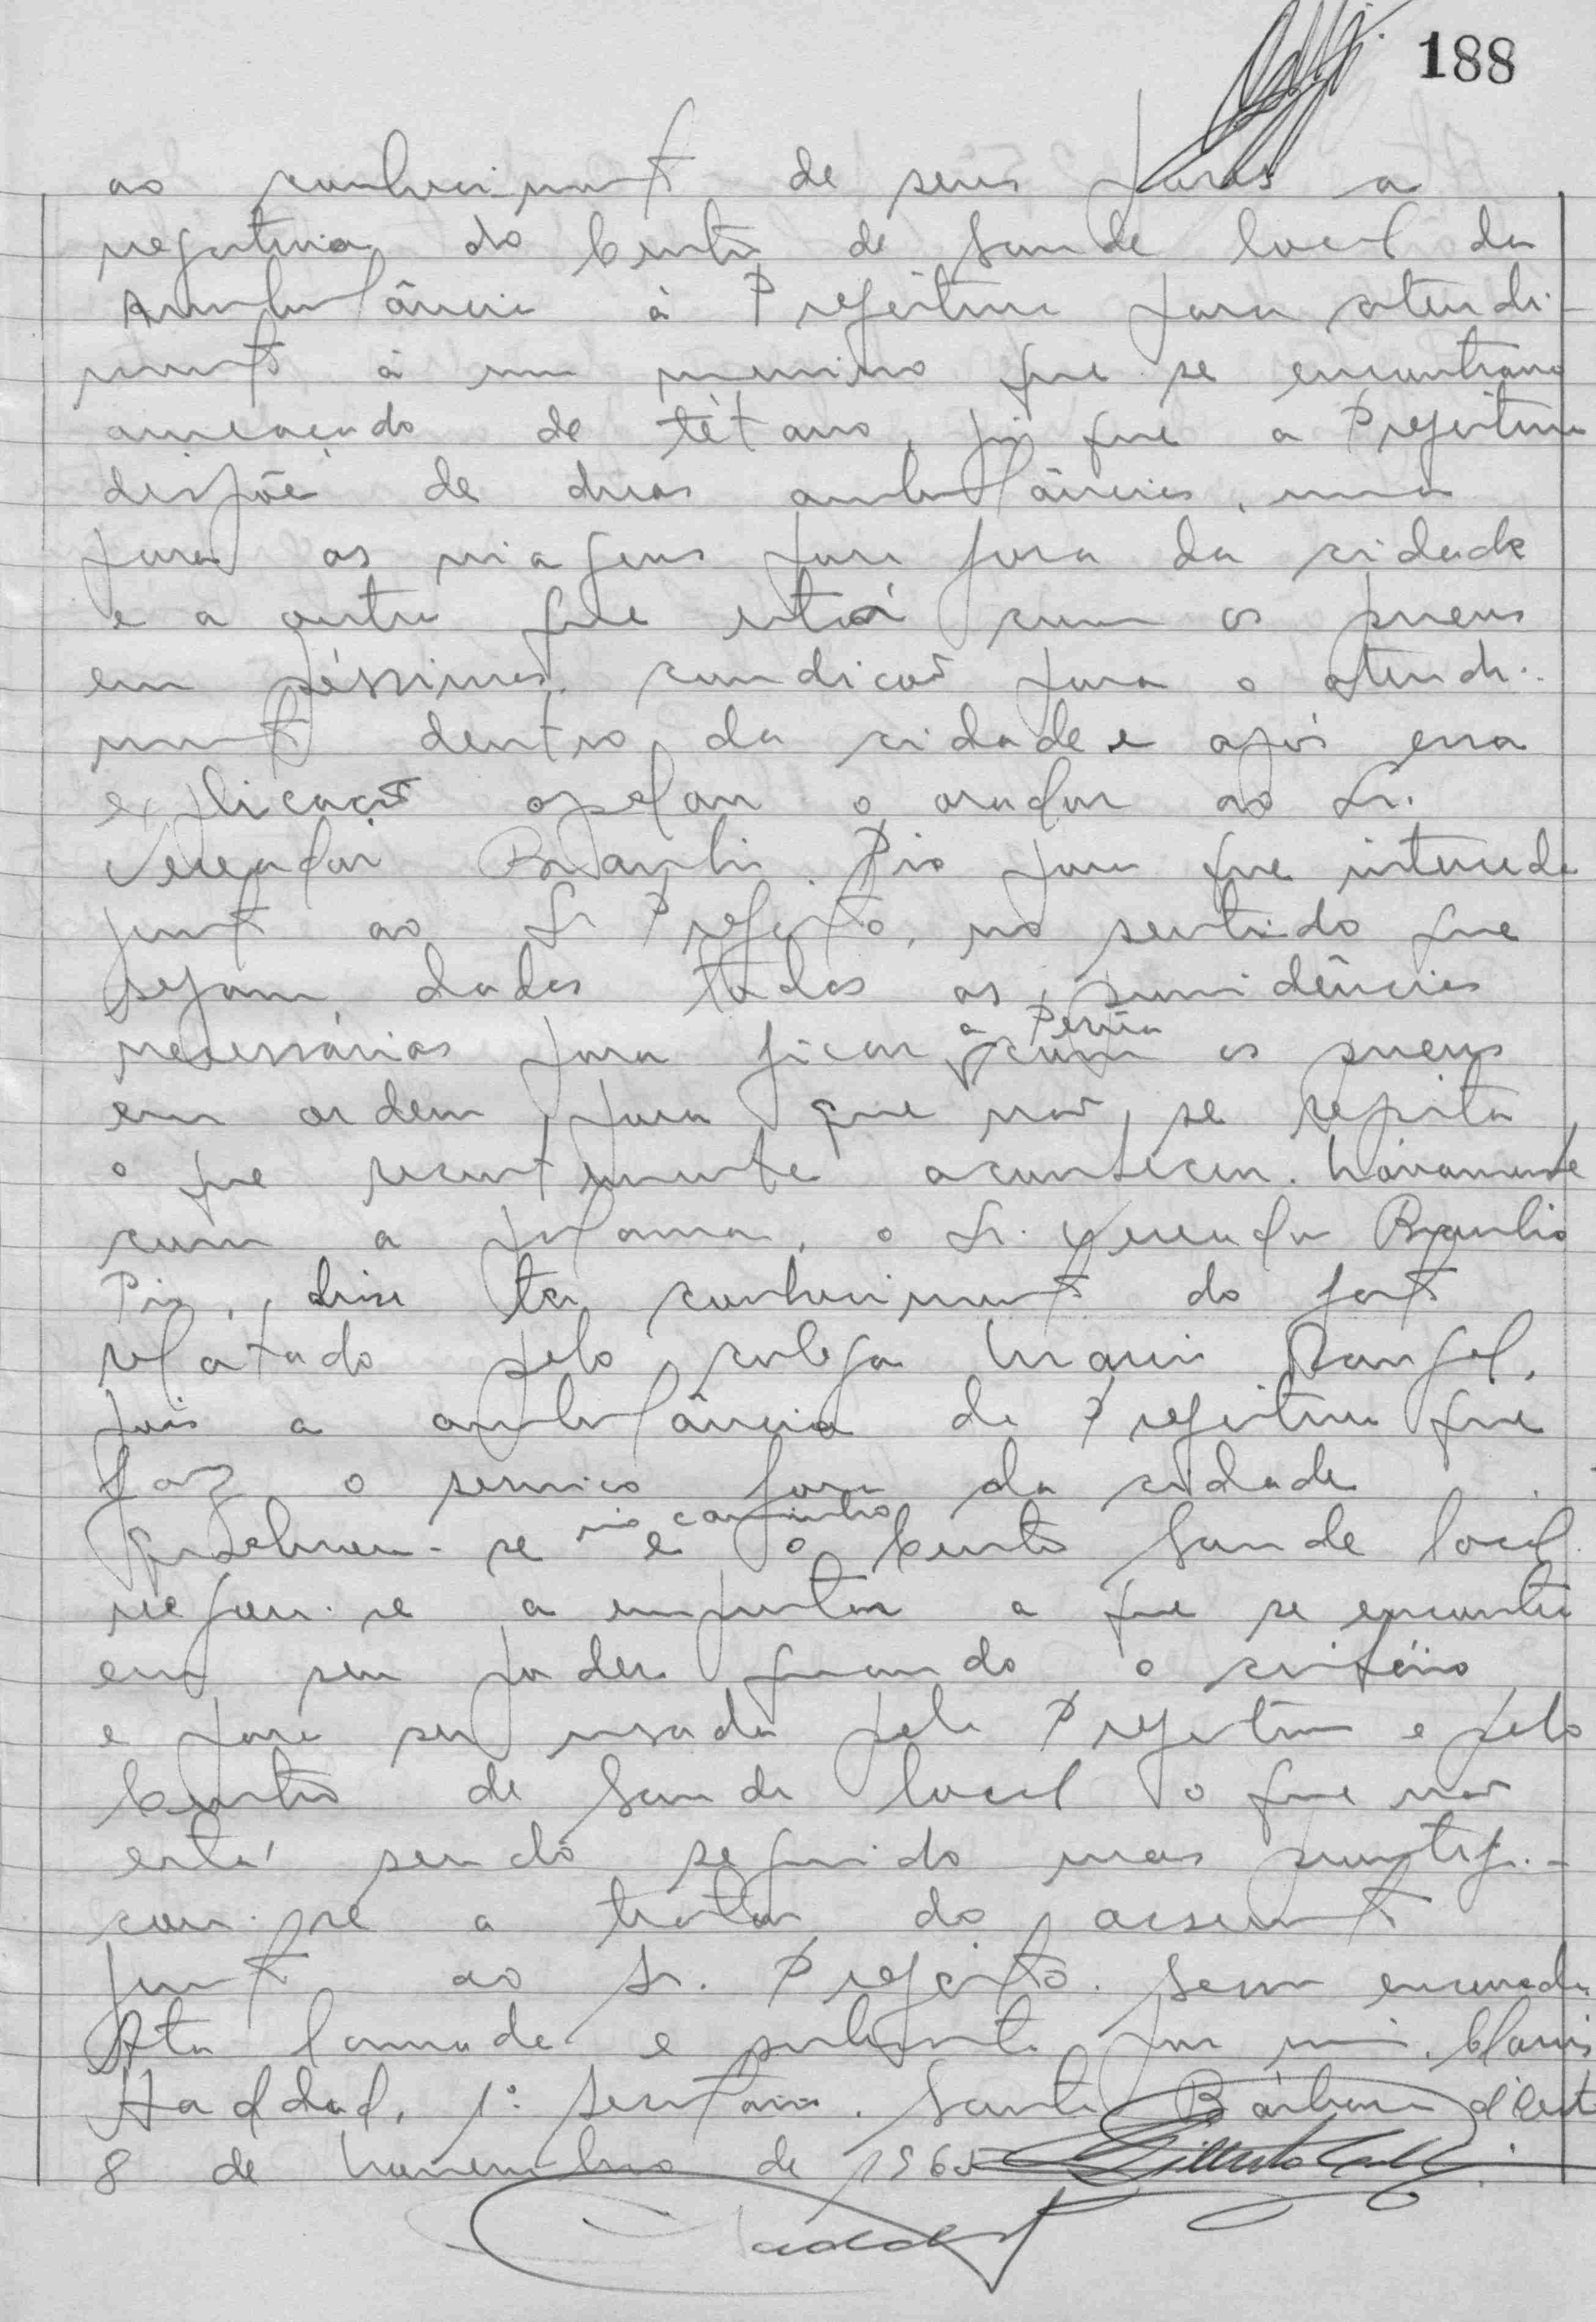 188
ao conhecimento de seus pares a
negativa do Centro de Saude local da
ambulância à Prefeitura para atendi-
mento à um menino que se encontrava
ameaçado de tétano, já que a Prefeitura
dispõe de duas ambulâncias, uma
para as viagens para fora da cidade
e a outra que está com os pneus
em péssimas condicões para o atendi-
mento dentro da cidade e após essa
explicação apelou o orador ao Sr.
Vereador Braulio Pio para que interceda
junto ao Sr Prefeito, no sentido que
sejam dadas todas as providências
necessárias para ficar a Perúa com os pneus
em ordem, para que não se repita
o que recentemente aconteceu. Novamente
com a palavra, o Sr. Vereador Braulio
Pio, disse ter conhecimento do fato
relatado pelo colega Mario Rangel,
pois a ambulância da Prefeitura que
faz o servico fora da cidade
quebrou-se no caminho e o Centro Saude local
negou-se a emprestar a que se encontra
em seu poder quando o critério
e para ser usada pela Prefeitura e pelo
Centro de Saude local o que não
está sendo seguido mas prontifi-
cou-se a tratar do assunto
junto ao Sr. Prefeito.
Ata lavrada e subscrita por mim,
Haddad, 1º Secretario. Santa Bárbara d'Oeste
8 de Novembro de 1965
Haddad